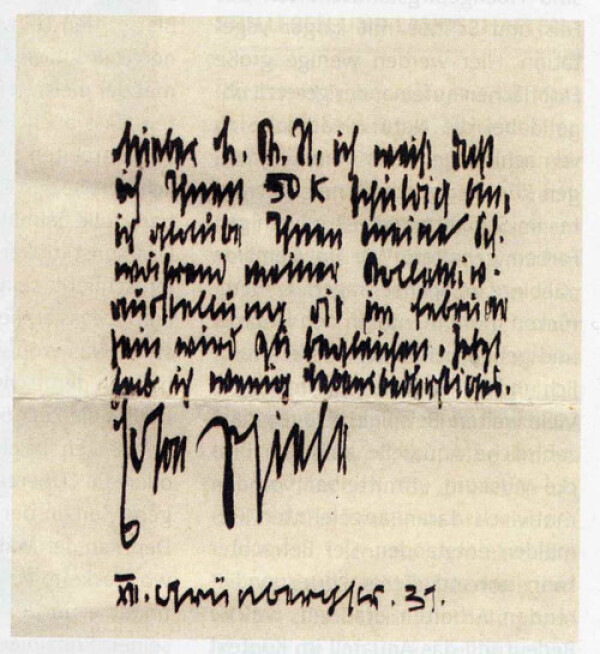 Lieber H. A. R. ich weiß daß
ich Ihnen 50 K schuldig bin,
ich glaube Ihnen meine Sch.
während meiner Kollektiv-
ausstellung die im Februar
sein wird zu begleichen. Jetzt
hab ich wenig
Egon Schiele
XII. Grünbergstr. 31.